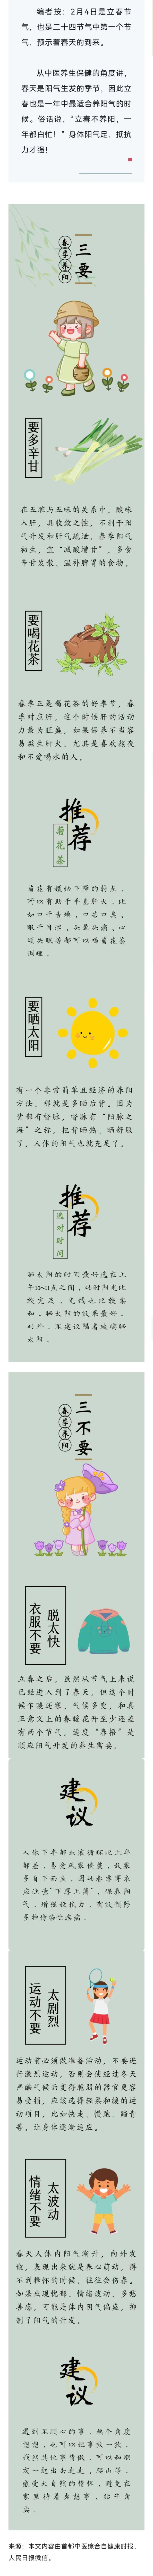 编者按：2月4日是立春节
气，也是二十四节气中第一个节
气，预示着春天的到来。
从中医养生保健的角度讲，
春天是阳气生发的季节，因此立
春也是一年中最适合养阳气的时
候。俗话说，“立春不养阳，一
年都白忙！”身体阳气足，抵抗
力才强!
春季养阳
三要
要多辛甘
在五脏与五味的关系中，酸味
入肝，具收敛之性，不利于阳
气升发和肝气疏泄，春季阳气
初生，宜“减酸增甘”，多食
辛甘发散、温补脾胃的食物。
要喝花茶
春季正是喝花茶的好季节，春
季对应肝，这个时候肝的活动
力最为旺盛，如果保养不当容
易滋生肝火，尤其是喜欢熬夜
和不爱喝水的人。
推荐
菊花茶
菊花有很纳下降的特点，
所以有助于平息肝火，比
如口干舌燥，口苦口臭，
眼干目涩，头晕头痛，心
烦失眠等都可以喝菊花茶
调理。
要晒太阳
有一个非常简单且经济的养阳
方法，那就是多晒后背。因为
背部有督脉，督脉有“阳脉之
海”之称，把督晒热、晒舒服
了，人体的阳气也就充足了。
推荐
选对时间
晒太阳的时间最好选在上
午10~11点之间，此时阳光比
较充足，光线也比较柔
和，晒太阳的效果最好。
此外，不建议隔着玻璃晒
太阳。
春季养阳
三不要
衣服不要
脱太快
立春之后，虽然从节气上来说
已经进入到了春天，但这个时
候乍暖还寒，气候多变，和真
正意义上的春暖花开至少还差
有两个节气，适度“春捂”是
顺应阳气升发的养生需要。
建议
人体下半部血液循环比上半
部差，易受风寒侵袭，故寒
多自下而生，因此春季穿衣
应注意“下厚上薄”，保养阳
气，增强抵抗力，有效预防
多种传染性疾病。
运动不要
太剧烈
运动前必须做准备活动，不要进
行激烈运动，否则会使经过冬天
严酷气候而变得脆弱的器官更容
易受损，应该选择轻柔和缓的运
动项目，比如快走、慢跑、踏青
等，让身体逐渐适应。
情绪不要
太波动
春天人体内阳气渐升，向外发
散，表现出来就是春心萌动，得
不到释怀的时候，往往会伤春。
如果出现忧郁，情绪波动，多愁
善感，可能是体内阴气偏盛，抑
制了阳气的升发。
建议
遇到不顺心的事，换个角度
想想，也可以把事放一放，
找些其他事情做，可以和朋
友一起出去走走，爬山等，
感受大自然的情怀，避免在
家里待着老想事、钻牛角
尖。
来源：本文内容由首都中医综合自健康时报、
人民日报微信。